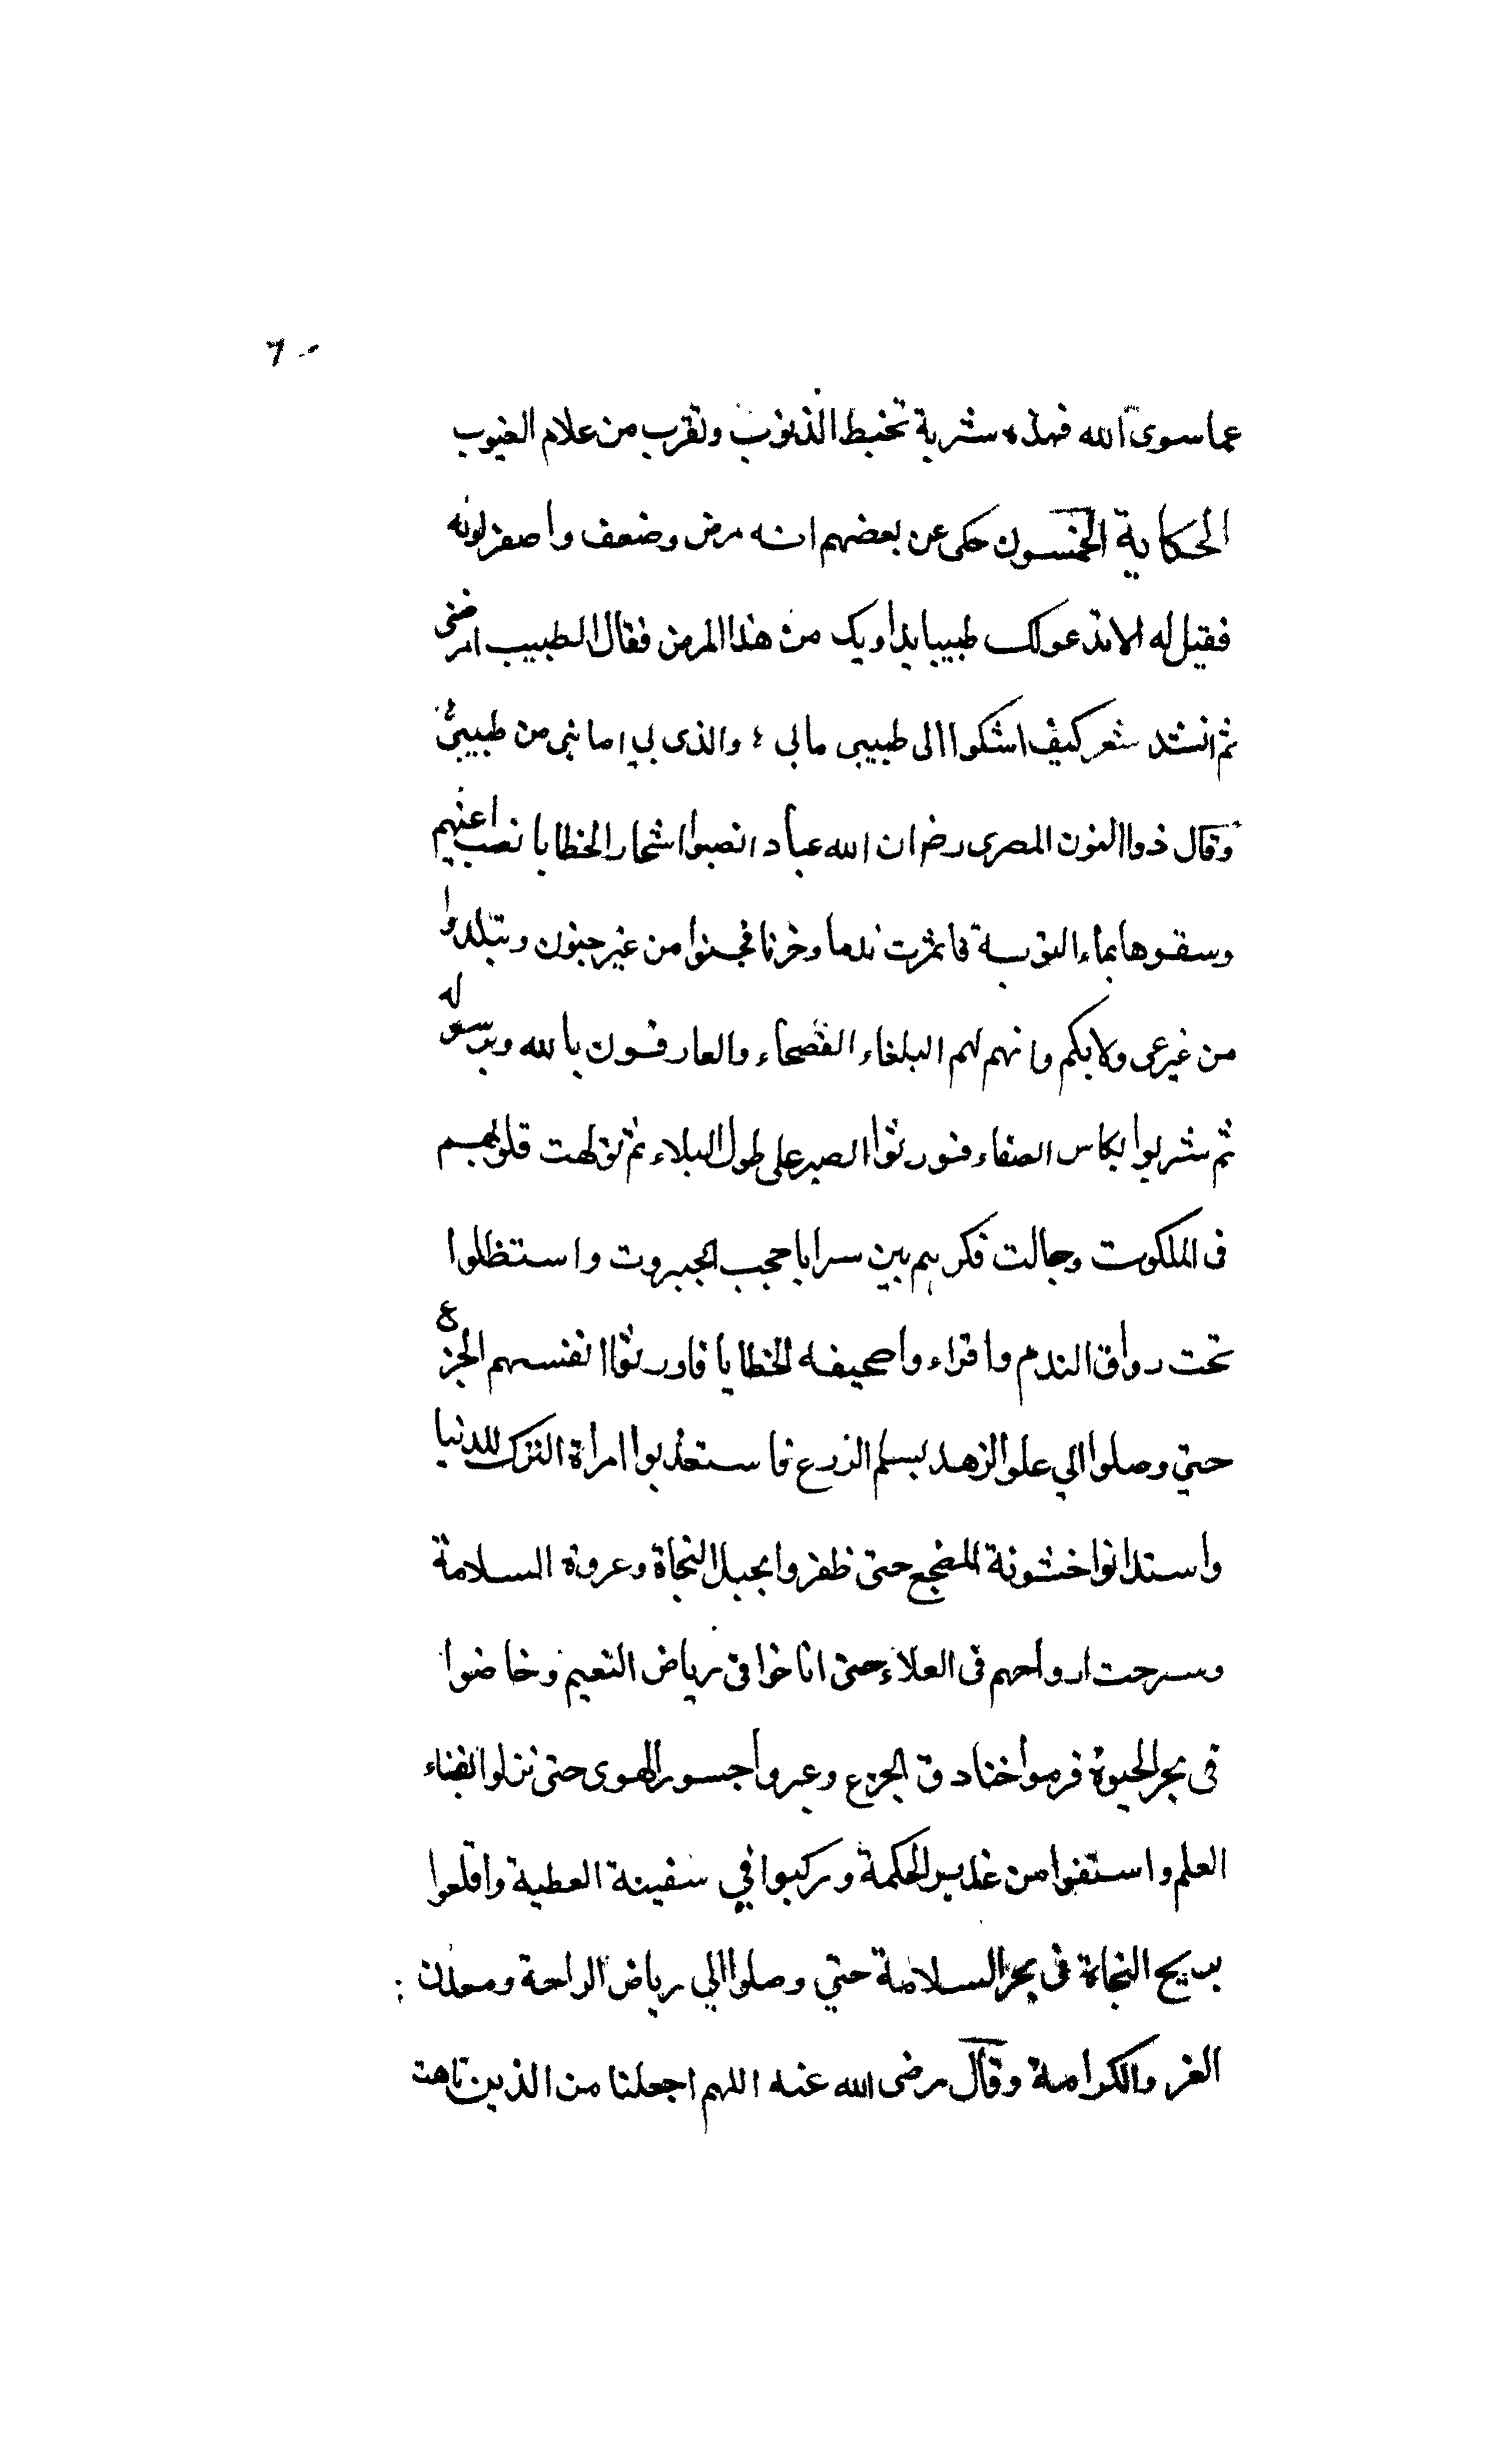 ٦٠
عما سوى الله فهذه شربة تخبط الذنوب وتقرب من علام الغيوب
الحكاية الخمسون حكى عن بعضهم انه مرض وضعف واصفر لونه
فقيل له الا ندعولك طبيبا يداويك من هذا المرض فقال الطبيب امرضنى
ثم انشد شعر كيف اشكوا الى طبيبى مابى ؛ والذى بي اصابنى من طبيبى
وقال ذوا النون المصرى رض ان الله عباد انصبوا اشجار الخطايا نصب اعينهم
وسقوها بماء التوبة فاثمرت ندما وحزنا فجنوا من غير جنون وتبلدوا
من غير عى ولا بكم وانهم لهم البلغاء الفصحاء والعارفون بالله وبرسوله
ثم شربوا بكاس الصفاء فورثوا الصبر على طول البلاء ثم تولهت قلوبهم
فى الملكوت وجالت فكرهم بين سرايا حجب الجبروت واستظلوا
تحت رواق الندم واقراءوا صحيفه الخطايا فاورثوا انفسهم الجزع
حتي وصلوا الي علو الزهد بسلم الورع فاستعذبوا امراة الترك للدنيا
واستدانوا خشونة المضجع حتى ظفروا بحبل النجاة وعروة السلامة
وسرحت ارواحهم فى العلاء حتى اناخوا فى رياض النعيم وخاضوا
فى بحر الحيوة فرموا خنادق الجزع وعبروا جسور الهوى حتى نزلوا بفناء
العلم واستقوا من غدير الحكمة وركبوا في سفينة العطية واقلعوا
بريح النجاة فى بحر السلامة حتي وصلوا الي رياض الراحة ومعدن :
العز والكرامة وقال رضى الله عنه اللهم اجعلنا من الذين تاهت